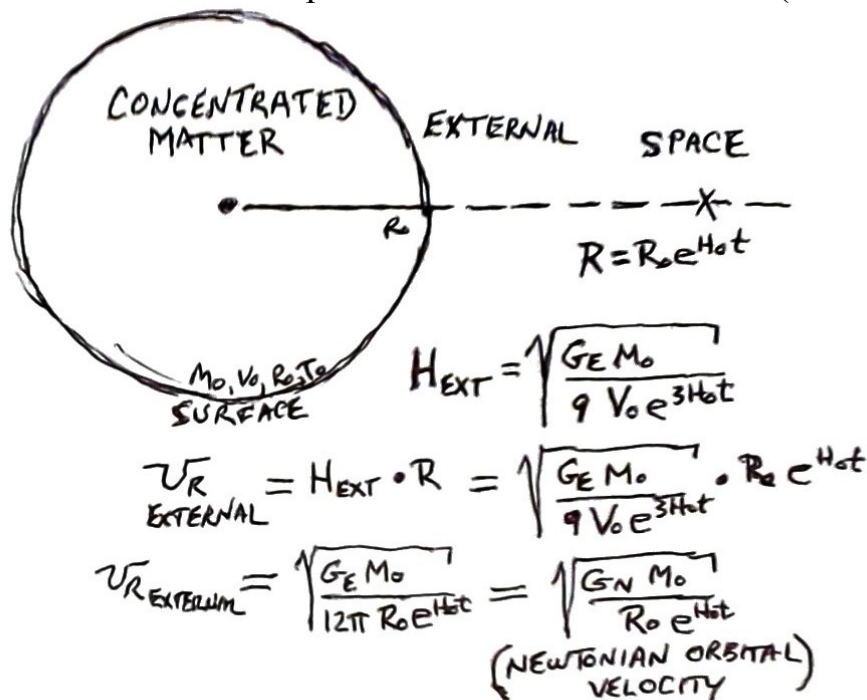 CONCENTRATED
MATTER
EXTERNAL
SPACE
R₀
R = R₀e^{H₀t}
M₀, V₀, R₀, T₀
SURFACE
H_EXT = √(G_E M₀ / 9 V₀ e^{3H₀t})
v_R EXTERNAL = H_EXT • R = √(G_E M₀ / 9 V₀ e^{3H₀t}) • R₀ e^{H₀t}
v_R EXTERNAL = √(G_E M₀ / 12π R₀ e^{H₀t}) = √(G_N M₀ / R₀ e^{H₀t})
(NEWTONIAN ORBITAL)
VELOCITY